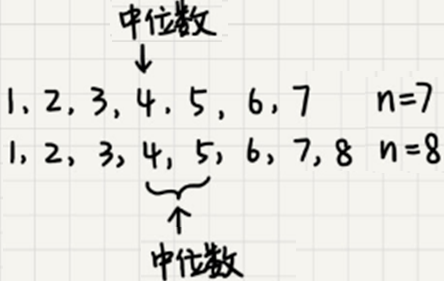 中位数
↓
1, 2, 3, 4, 5, 6, 7 n=7
1, 2, 3, 4, 5, 6, 7, 8 n=8
↑
中位数